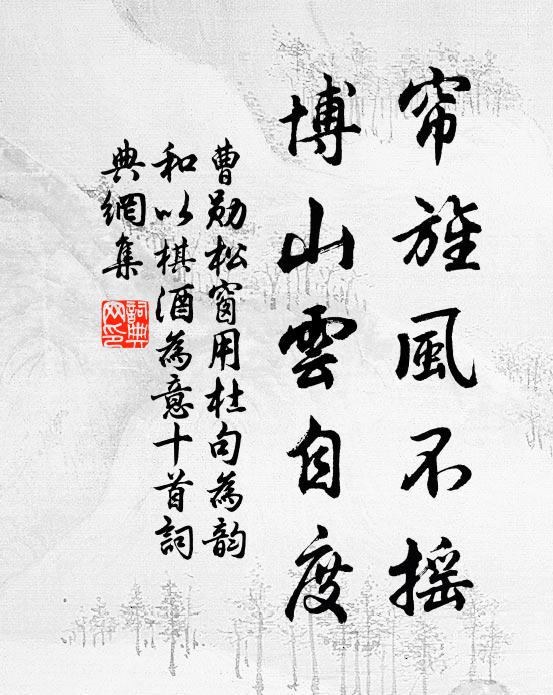 帘旌風不摇
博山雲自度
曹勋松窗用杜句為韵
和以棋酒為意十首詞
典網集
詞典网印